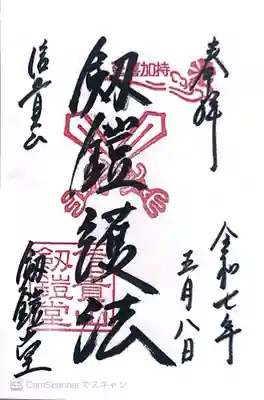 奉拝
令和七年
五月八日
劔鎧護法
信貴山
劔鎧堂
加持
信貴山
劔鎧堂
CamScanner でスキャン